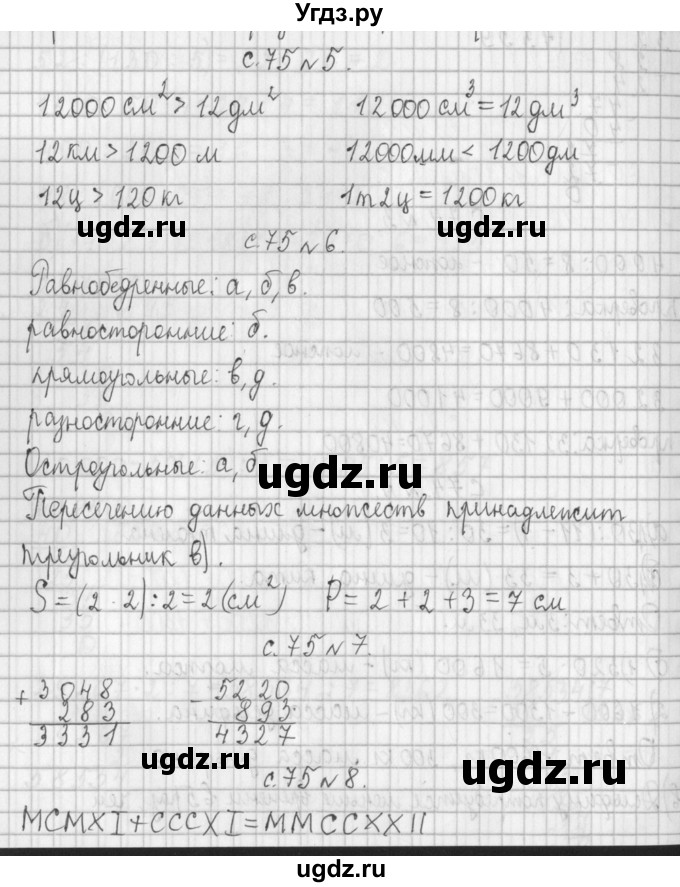 Угдз.ру
с.75 №5.
12000 см² > 12 дм² 12000 см³ = 12 дм³
12 км > 1200 м 12000 мм < 1200 дм
12 ц > 120 кг 1т 2ц = 1200 кг
ugdz.ru ugdz.ru
с.75 №6.
Равнобедренные: а, б, в.
равносторонние: б.
прямоугольные: в, д.
разносторонние: г, д.
Остроугольные: а, б
ugdz.ru
Пересечению данных множеств принадлежит
треугольник в).
S = (2 · 2) : 2 = 2 (см²) P = 2 + 2 + 3 = 7 см
с.75 №7.
+ 3048 - 5220
283 893
3331 4327
ugdz.ru ugdz.ru
с.75 №8.
MCMXI + CCCXI = MMCCXXII
ugdz.ru